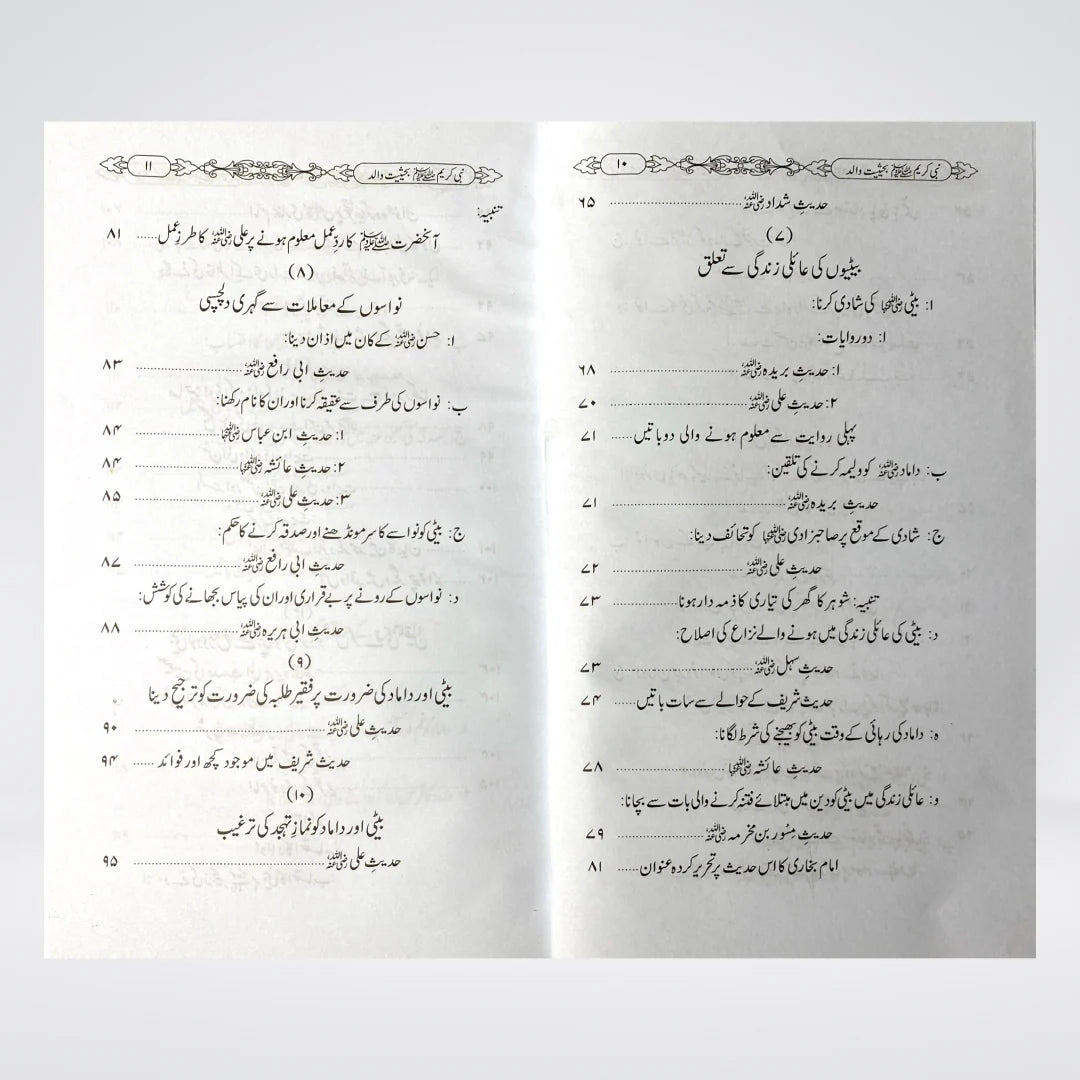 نبی کریم ﷺ بحیثیت والد ۱۰
حدیثِ شداد رضی اللہ عنہ ........ ۶۵
(۷)
بیٹیوں کی عائلی زندگی سے تعلق
ا: بیٹی رضی اللہ عنہا کی شادی کرنا:
ا: دو روایات:
۱: حدیث بریدہ رضی اللہ عنہ ........ ۶۸
۲: حدیثِ علی رضی اللہ عنہ ........ ۷۰
پہلی روایت سے معلوم ہونے والی دو باتیں ...... ۷۱
ب: داماد رضی اللہ عنہ کو ولیمہ کرنے کی تلقین:
حدیث بریدہ رضی اللہ عنہ ........ ۷۱
ج: شادی کے موقع پر صاحبزادی رضی اللہ عنہا کو تحائف دینا:
حدیثِ علی رضی اللہ عنہ ........ ۷۲
تنبیہ: شوہر کا گھر کی تیاری کا ذمہ دار ہونا ........ ۷۳
د: بیٹی کی عائلی زندگی میں ہونے والے نزاع کی اصلاح:
حدیث سہل رضی اللہ عنہ ........ ۷۳
حدیث شریف کے حوالے سے سات باتیں ........ ۷۴
ہ: داماد کی رہائی کے وقت بیٹی کو بھیجنے کی شرط لگانا:
حدیثِ عائشہ رضی اللہ عنہا ........ ۷۸
و: عائلی زندگی میں بیٹی کو دین میں مبتلائے فتنہ کرنے والی بات سے بچانا:
حدیثِ مِسْور بن مخرمہ رضی اللہ عنہ ........ ۷۹
امام بخاری کا اس حدیث پر تحریر کردہ عنوان ...... ۸۱
نبی کریم ﷺ بحیثیت والد ۱۱
تنبیہ:
آنحضرت ﷺ کا ردِّ عمل معلوم ہونے پر علی رضی اللہ عنہ کا طرزِ عمل ...... ۸۱
(۸)
نواسوں کے معاملات سے گہری دلچسپی
ا: حسن رضی اللہ عنہ کے کان میں اذان دینا:
حدیثِ ابی رافع رضی اللہ عنہ ........ ۸۳
ب: نواسوں کی طرف سے عقیقہ کرنا اور ان کا نام رکھنا:
۱: حدیثِ ابن عباس رضی اللہ عنہما ........ ۸۴
۲: حدیثِ عائشہ رضی اللہ عنہا ........ ۸۴
۳: حدیثِ علی رضی اللہ عنہ ........ ۸۵
ج: بیٹی کو نواسے کا سر مونڈھنے اور صدقہ کرنے کا حکم:
حدیثِ ابی رافع رضی اللہ عنہ ........ ۸۷
د: نواسوں کے رونے پر بے قراری اور ان کی پیاس بجھانے کی کوشش:
حدیثِ ابی ہریرہ رضی اللہ عنہ ........ ۸۸
(۹)
بیٹی اور داماد کی ضرورت پر فقیر طلبہ کی ضرورت کو ترجیح دینا
حدیثِ علی رضی اللہ عنہ ........ ۹۰
حدیث شریف میں موجود کچھ اور فوائد ...... ۹۴
(۱۰)
بیٹی اور داماد کو نمازِ تہجد کی ترغیب
حدیثِ علی رضی اللہ عنہ ........ ۹۵